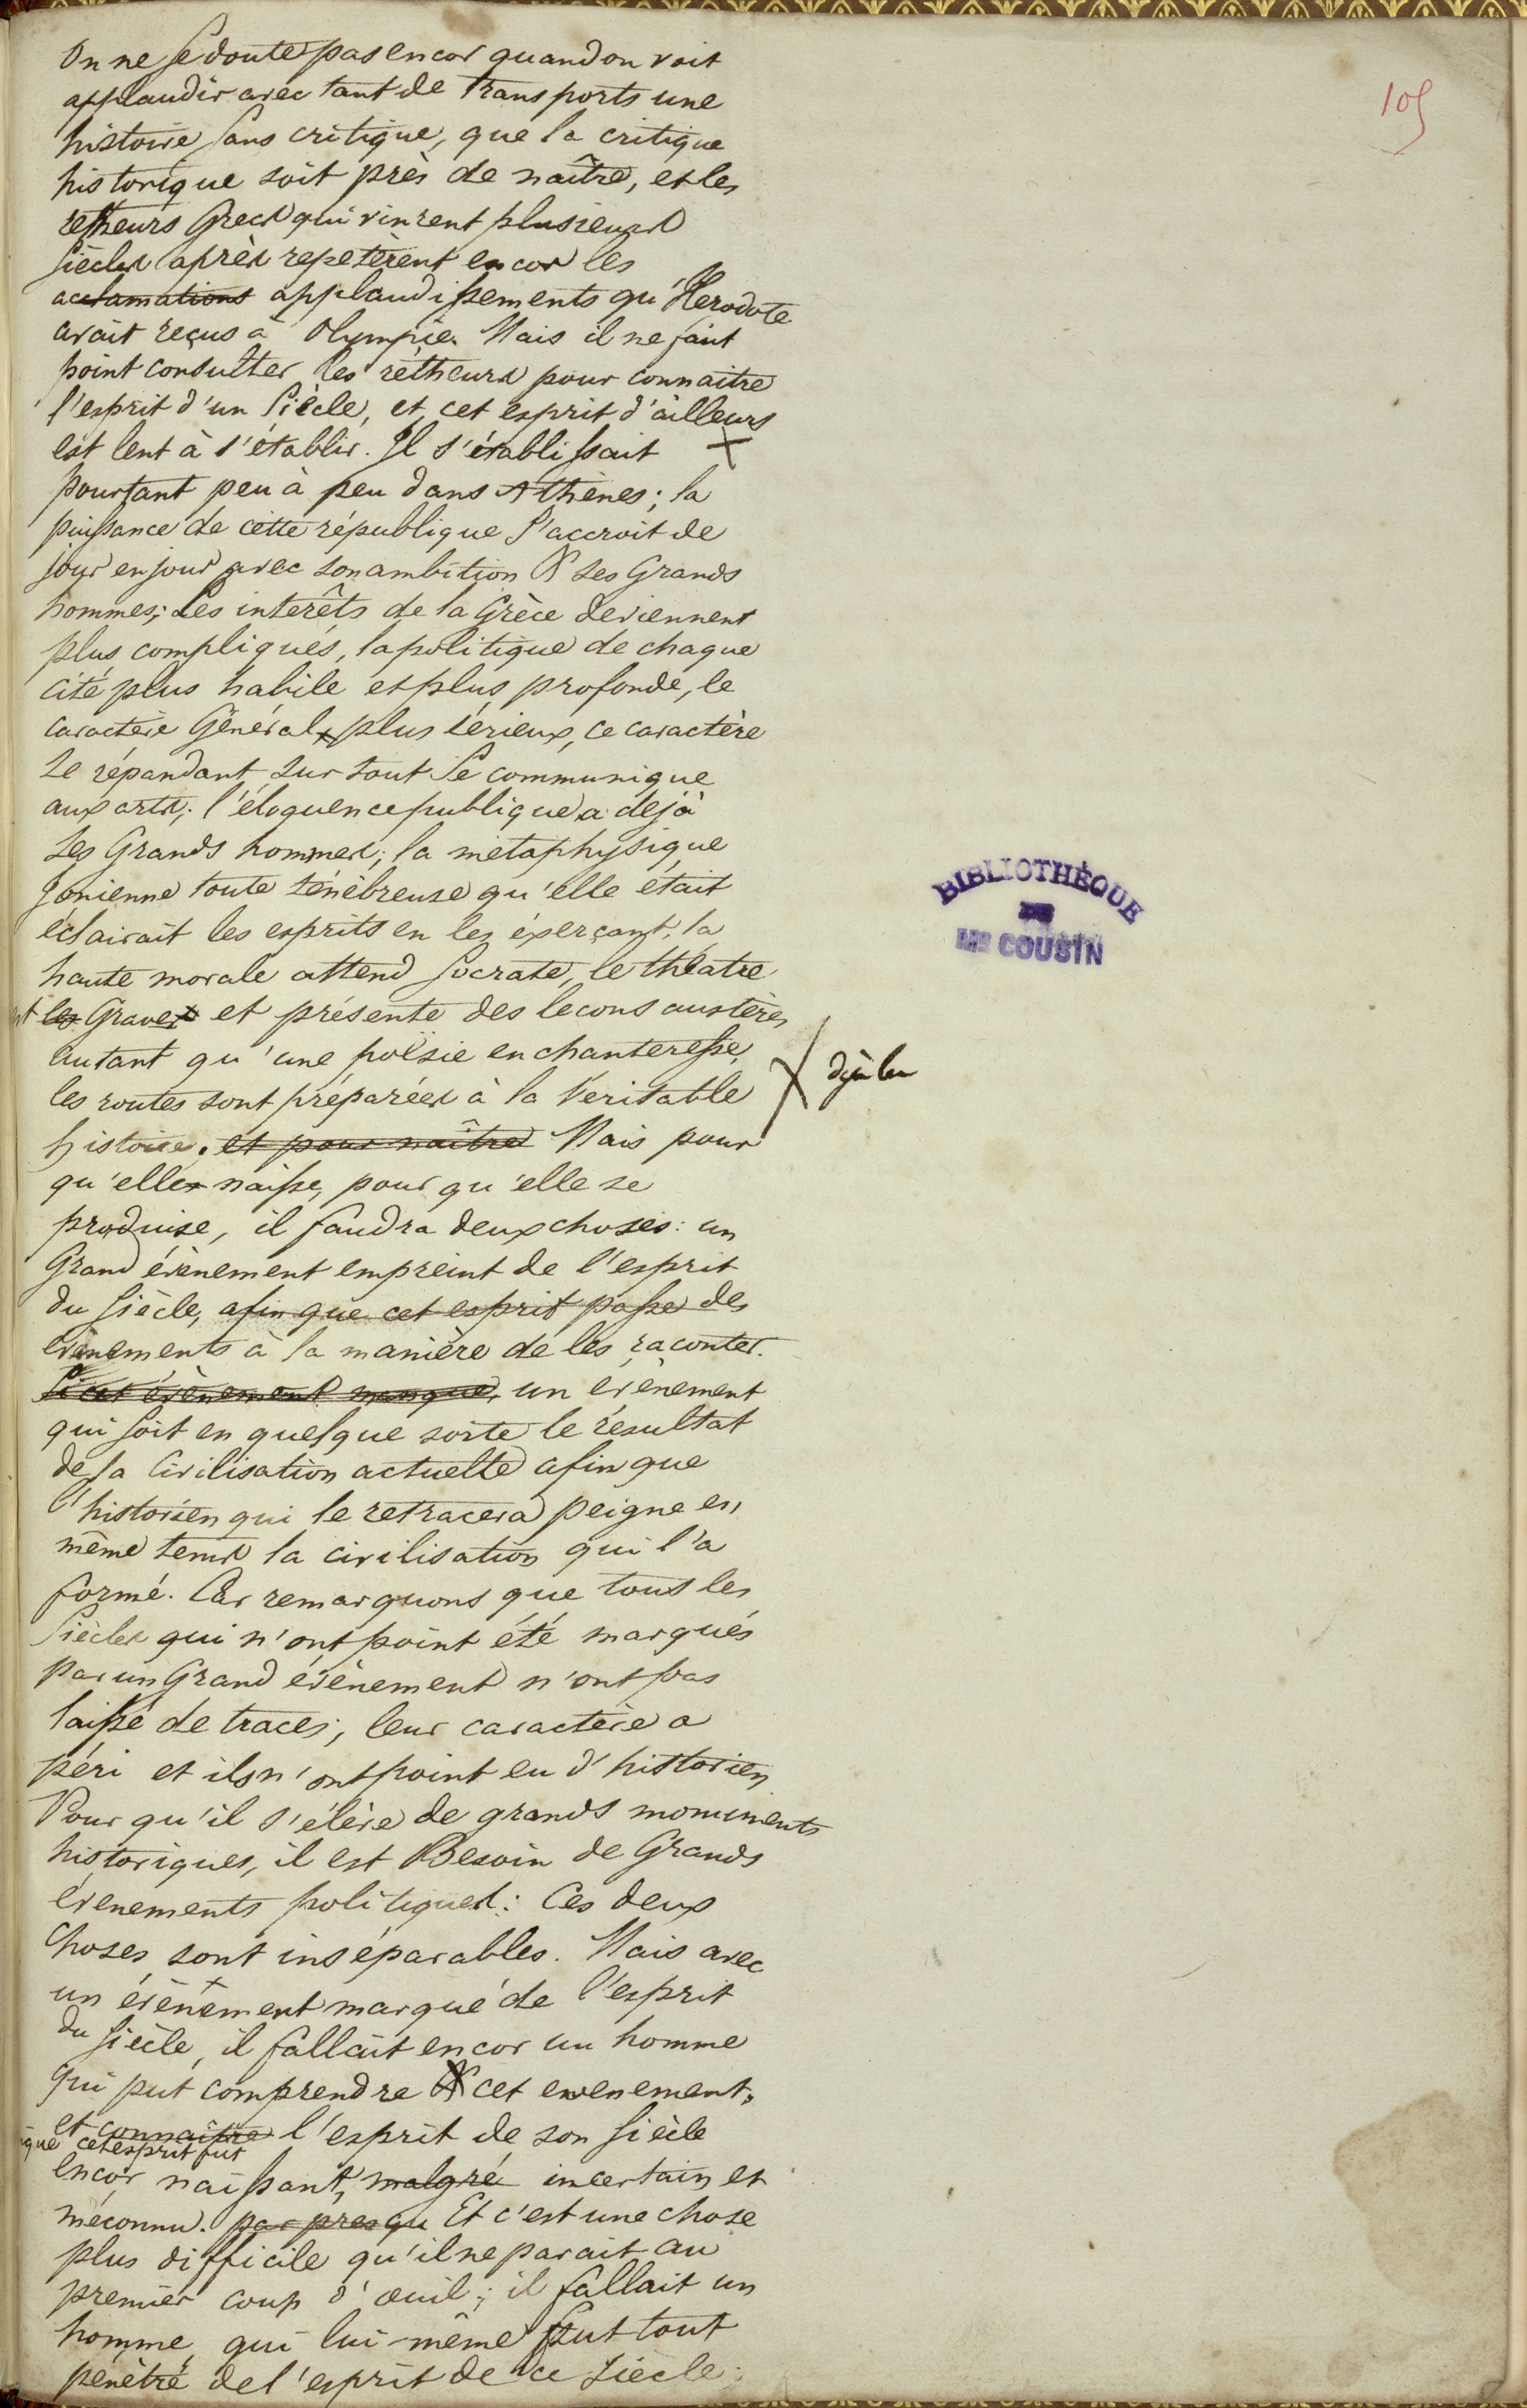 105
On ne se doute pas encor quand on voit
applaudir avec tant de transports une
histoire sans critique, que la critique
historique soit près de naître, et les
retheurs Grecs qui vinrent plusieurs
siècles après repetèrent encor les
acclamations applaudissements qu'Herodote
avait reçus à Olympie. Mais il ne faut
point consulter les rétheurs pour connaitre
l'esprit d'un siècle, et cet esprit d'ailleurs
est lent à s'établir. Il s'établissait
pourtant peu à peu dans Athènes; la
puissance de cette république s'accroit de
jour en jour avec son ambition & ses Grands
hommes; Les interêts de la Grèce deviennent
plus compliqués, la politique de chaque
cité plus habile et plus profonde, le
caractère Général plus sérieux, ce caractère
se répandant sur tout se communique
aux arts; l'éloquence publique a dejà
ses Grands hommes; la métaphysique
Jonienne toute ténèbreuse qu'elle était
éclairait les esprits en les éxerçant, la
haute morale attend Socrate, le théatre
est les Graves et présente des lecons austères
autant qu'une poësie enchanteresse,
les routes sont préparées à la véritable
déjà lu
histoire. et pour naître Mais pour
qu'elle naisse, pour qu'elle se
produise, il faudra deux choses: un
Grand évènement empreint de l'esprit
du siècle, afin que cet esprit passe des
evènements à la manière de les raconter.
Si cet évènement manque, un évènement
qui soit en quelque sorte le résultat
de la civilisation actuelle afin que
l'historien qui le retracera peigne en
même tems la civilisation qui l'a
formé. Car remarquons que tous les
siècles qui n'ont point été marqués
par un Grand évènement n'ont pas
laissé de traces; leur caractère a
péri et ils n'ont point eu d'historien
Pour qu'il s'élève de grands monuments
historiques, il est Besoin de Grands
évenements politiques: Ces deux
choses sont inséparables. Mais avec
un évènement marqué de l'esprit
du siècle, il fallait encor un homme
qui put comprendre & cet evenement,
et connaitre l'esprit de son siècle
que cet esprit fut
encor naissant, malgré incertain et
méconnu. par presqu Et c'est une chose
plus difficile qu'il ne parait au
premier coup d'œuil; il fallait un
homme qui lui-même fut tout
pénétré de l'esprit de ce siècle.
BIBLIOTHÈQUE
DE
Mr COUSIN